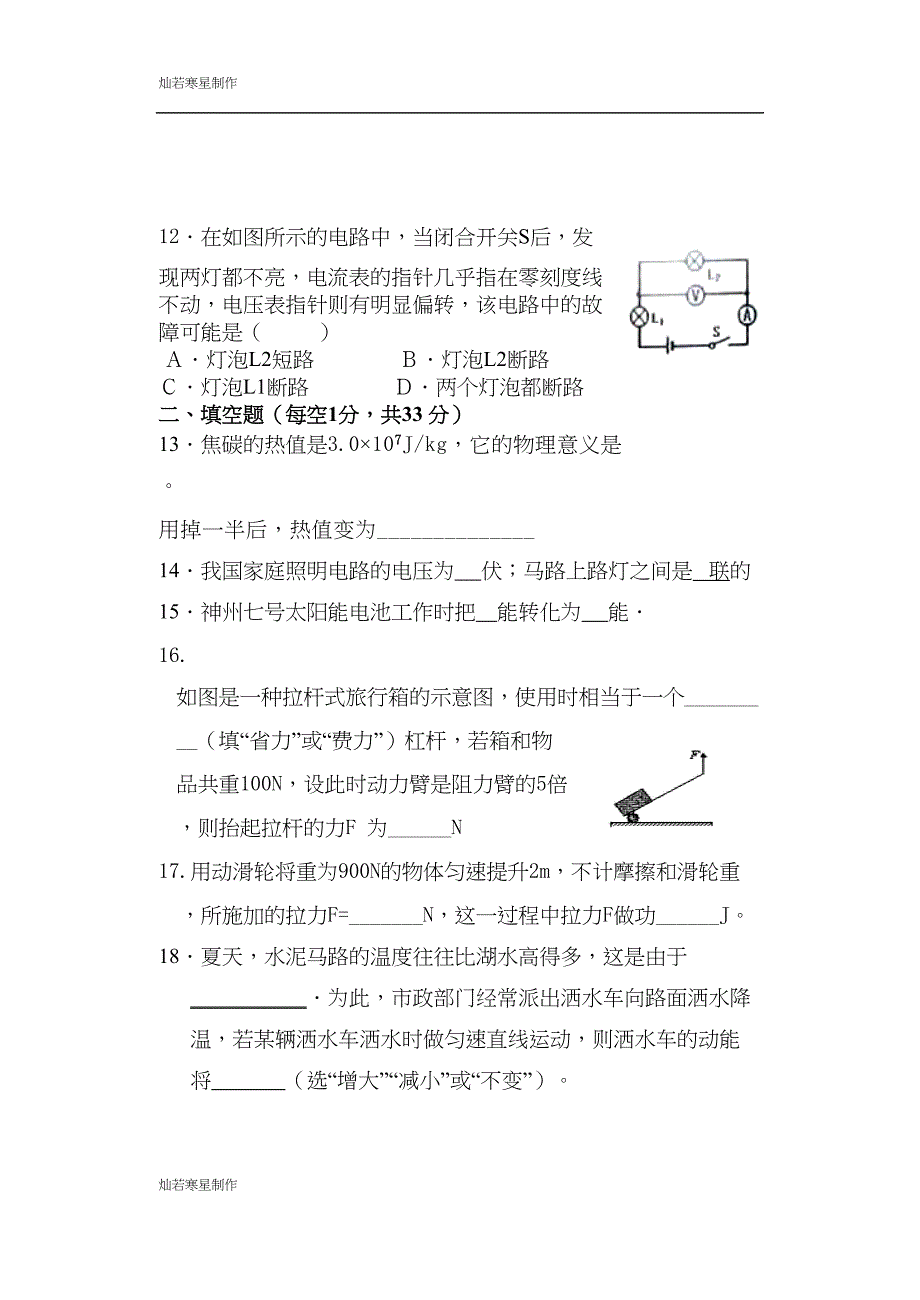 灿若寒星制作
12．在如图所示的电路中，当闭合开关S后，发
现两灯都不亮，电流表的指针几乎指在零刻度线
不动，电压表指针则有明显偏转，该电路中的故
障可能是（　　）
A．灯泡L2短路　　B．灯泡L2断路
C．灯泡L1断路　　D．两个灯泡都断路
L₂
V
L₁
S
A
二、填空题（每空1分，共33 分）
13．焦碳的热值是3.0×10⁷J/kg，它的物理意义是
。
用掉一半后，热值变为______________
14．我国家庭照明电路的电压为__伏；马路上路灯之间是_联的
15．神州七号太阳能电池工作时把__能转化为__能．
16.
如图是一种拉杆式旅行箱的示意图，使用时相当于一个_______
__（填“省力”或“费力”）杠杆，若箱和物
品共重100N，设此时动力臂是阻力臂的5倍
，则抬起拉杆的力F 为______N
F
17.用动滑轮将重为900N的物体匀速提升2m，不计摩擦和滑轮重
，所施加的拉力F=_______N，这一过程中拉力F做功______J。
18．夏天，水泥马路的温度往往比湖水高得多，这是由于
___________．为此，市政部门经常派出洒水车向路面洒水降
温，若某辆洒水车洒水时做匀速直线运动，则洒水车的动能
将_______（选“增大”“减小”或“不变”）。
灿若寒星制作